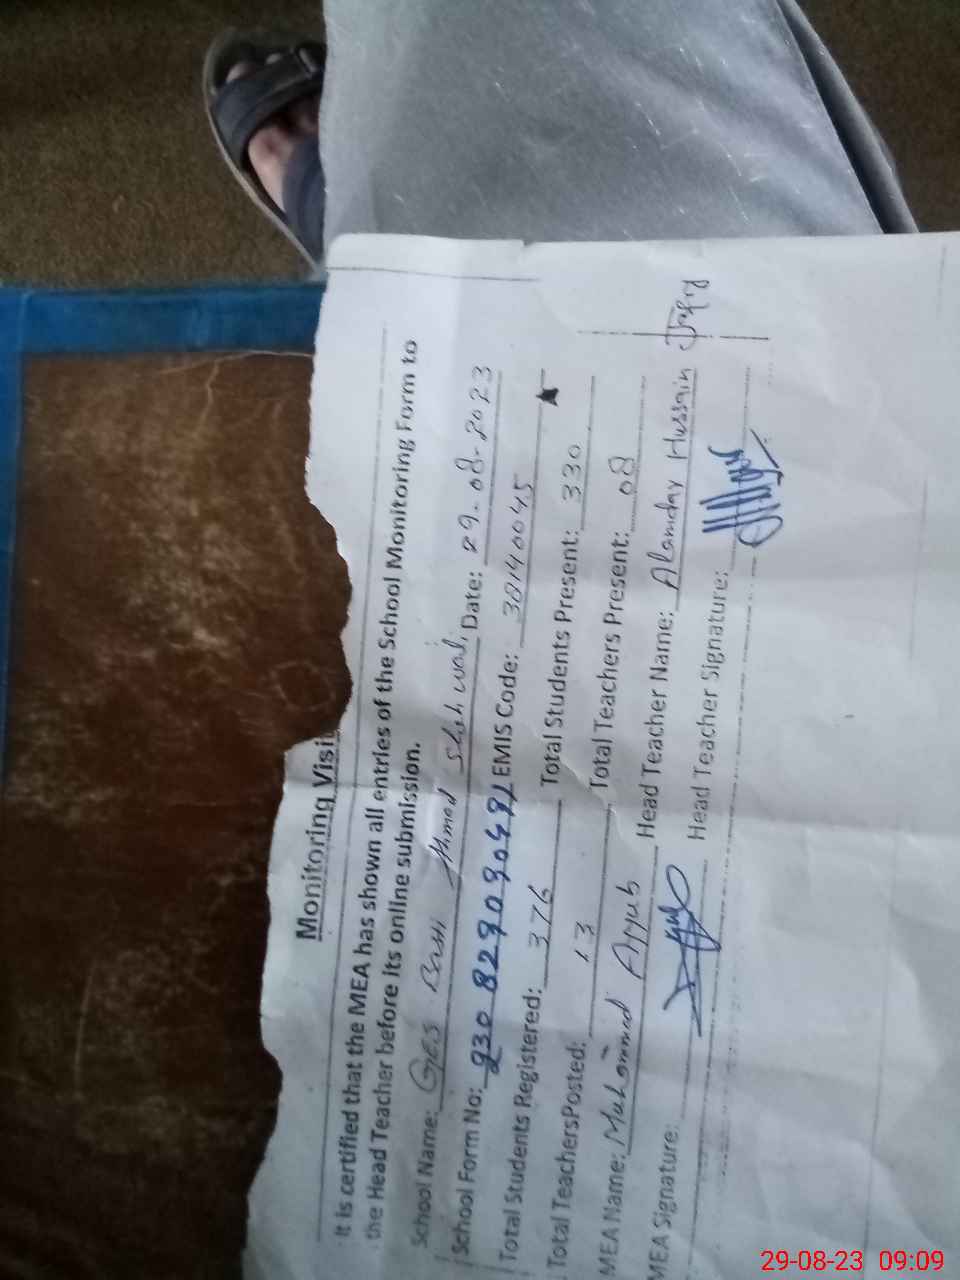 Monitoring Visi
It is certified that the MEA has shown all entries of the School Monitoring Form to
the Head Teacher before its online submission.
School Name: GES Basti Ahmad Date: 29-08-2023
School Form No: EMIS Code: 38140045
Total Students Registered: 376 Total Students Present: 330
Total TeachersPosted: 13 Total Teachers Present: 08
MEA Name: Muhammad Ayyub Head Teacher Name: Alamdar Hussain Jafry
MEA Signature: Head Teacher Signature:
29-08-23 09:09